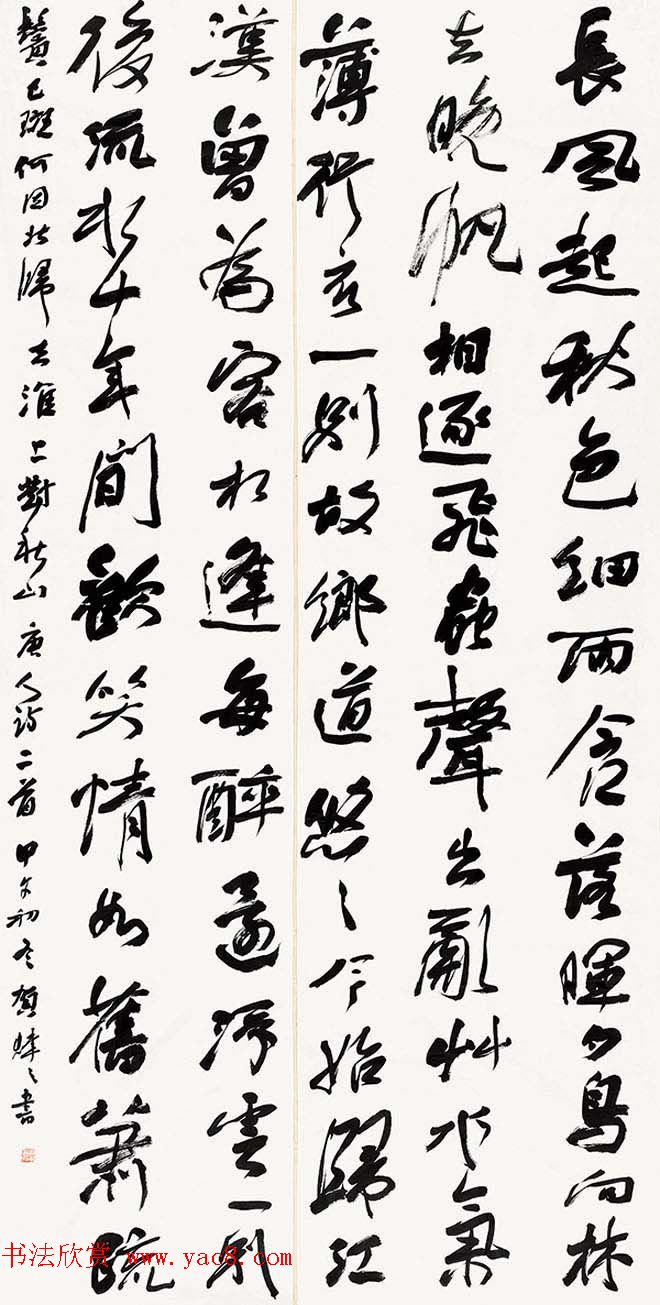 長風起秋色細雨含落暉夕鳥向林
去晚帆相逐飛蟲聲出亂艸水氣
薄行衣一別故鄉道悠〻今始歸江
漢曾為客相逢每醉還浮雲一別
後流水十年間歡笑情如舊蕭疏
鬢已斑何因北歸去淮上對秋山 唐人詩二首 甲午初冬賀〻書
书法欣赏 www.yac8.com